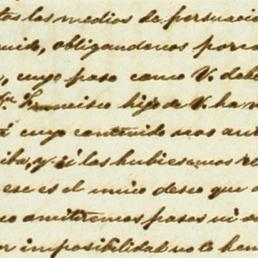 tos los medios de persuacio
uido, obligandonos por co
, cuyo paso como V. debe
Francisco hijo de V. ha ma
á cuyo contenido nos
iba, y si las hubiesemos re
ese es el unico deseo que a
co omitiremos pasos ni
imposibilidad no le hem